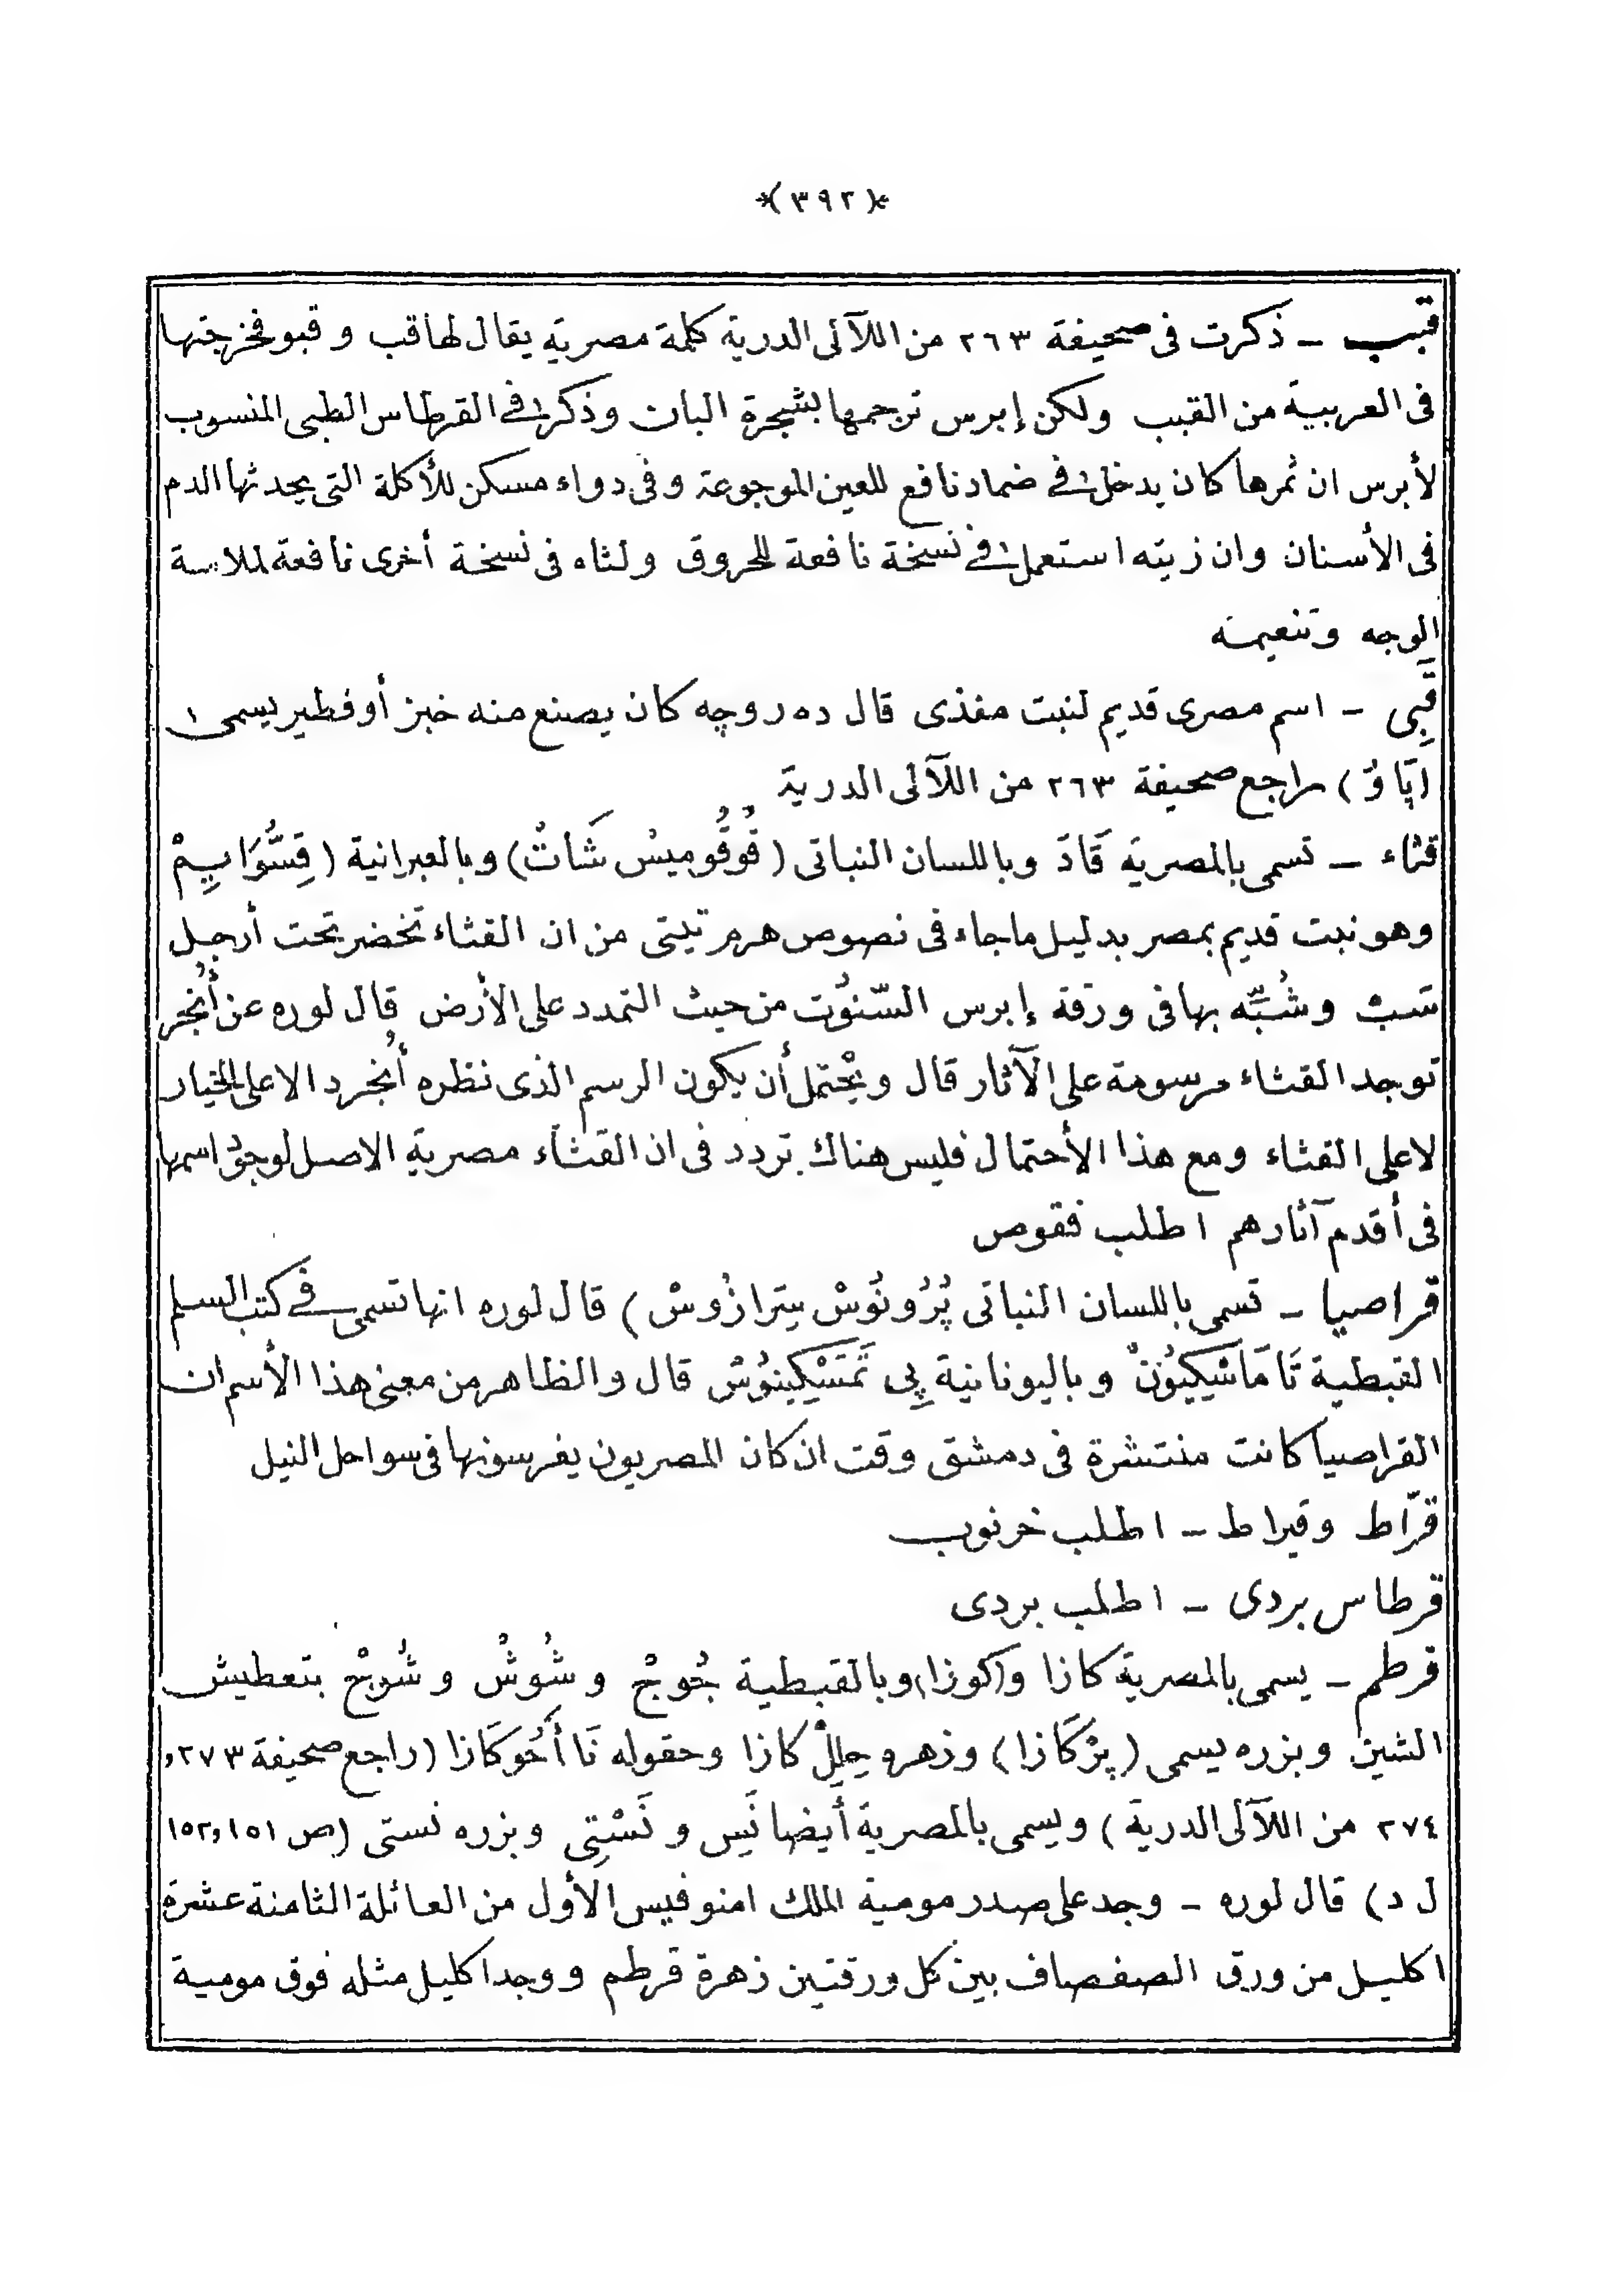 *(٣٩٢)*
قبب - ذكرت فى صحيفة ٢٦٣ من اللآلى الدرية كلمة مصرية يقال لها قب وقبو فخرجتها
فى العربية من القبب ولكن إبرس ترجمها بشجرة البان وذكر فى القرطاس الطبى المنسوب
لأبرس ان ثمرها كان يدخل فى ضماد نافع للعين الموجوعة وفى دواء مسكن للأكلة التى يحدثها الدم
فى الأسنان وان زيته استعمل فى نسخة نافعة للحروق ولثاه فى نسخة أخرى نافعة لملاسة
الوجه وتنعيمه
قَبِى - اسم مصرى قديم لنبت مغذى قال ده روچه كان يصنع منه خبز أو فطير يسمى
(پَاوُ) راجع صحيفة ٢٦٣ من اللآلى الدرية
قثاء - تسمى بالمصرية قَادَ وباللسان النباتى (قُوقُوميسْ شَاتْ) وبالعبرانية (قِسُّوَابِيمْ
وهو نبت قديم بمصر بدليل ماجاء فى نصوص هرم تيتى من ان القثاء تخضر تحت أرجل
سَبْ وشُبِّه بها فى ورقة إبرس السّنوُت من حيث التمدد على الأرض قال لوره عن أُنْجر
توجد القثاء مرسومة على الآثار قال ويحْتمل أن يكون الرسم الذى نظره أُنجر دالا على الخيار
لاعلى القثاء ومع هذا الأحتمال فليس هناك تردد فى ان القثاء مصرية الاصل لوجود اسمها
فى أقدم آثارهم اطلب فقوص
قراصيا - تسمى باللسان النباتى پُرُونُوسْ سِتراِزُوسْ) قال لوره انها تسمى فى كتب السلم
القبطية تَامَاسْكِيُنُونْ وباليونانية پِى تَمَسْكِينوُسْ قال والظاهر من معنى هذا الأسم ان
القراصيا كانت منتشرة فى دمشق وقت ان كان المصريون يغرسونها فى سواحل النيل
قرّاط وقيراط - اطلب خرنوب
قرطاس بردى - اطلب بردى
قرطم - يسمى بالمصرية كازا و(كوزا) وبالقبطية جُوجْ وشُوشْ وشُوجْ بتعطيش
الشين وبزره يسمى (پِرْكَازا) وزهره حِلِلْ كازا وحقوله نَا أَحُو كَازا (راجع صحيفة ٢٧٣و
٢٧٤ من اللآلى الدرية) ويسمى بالمصرية أيضا نَيس ونَسْتِى وبزره نستى (ص ١٥١و١٥٢
ل د) قال لوره - وجد على صدر مومية الملك امنوفيس الأول من العائلة الثامنة عشرة
اكليل من ورق الصفصاف بين كل ورقتين زهرة قرطم ووجد اكليل مثله فوق مومية